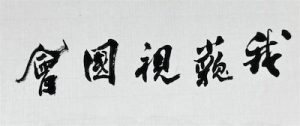 我藐視國會